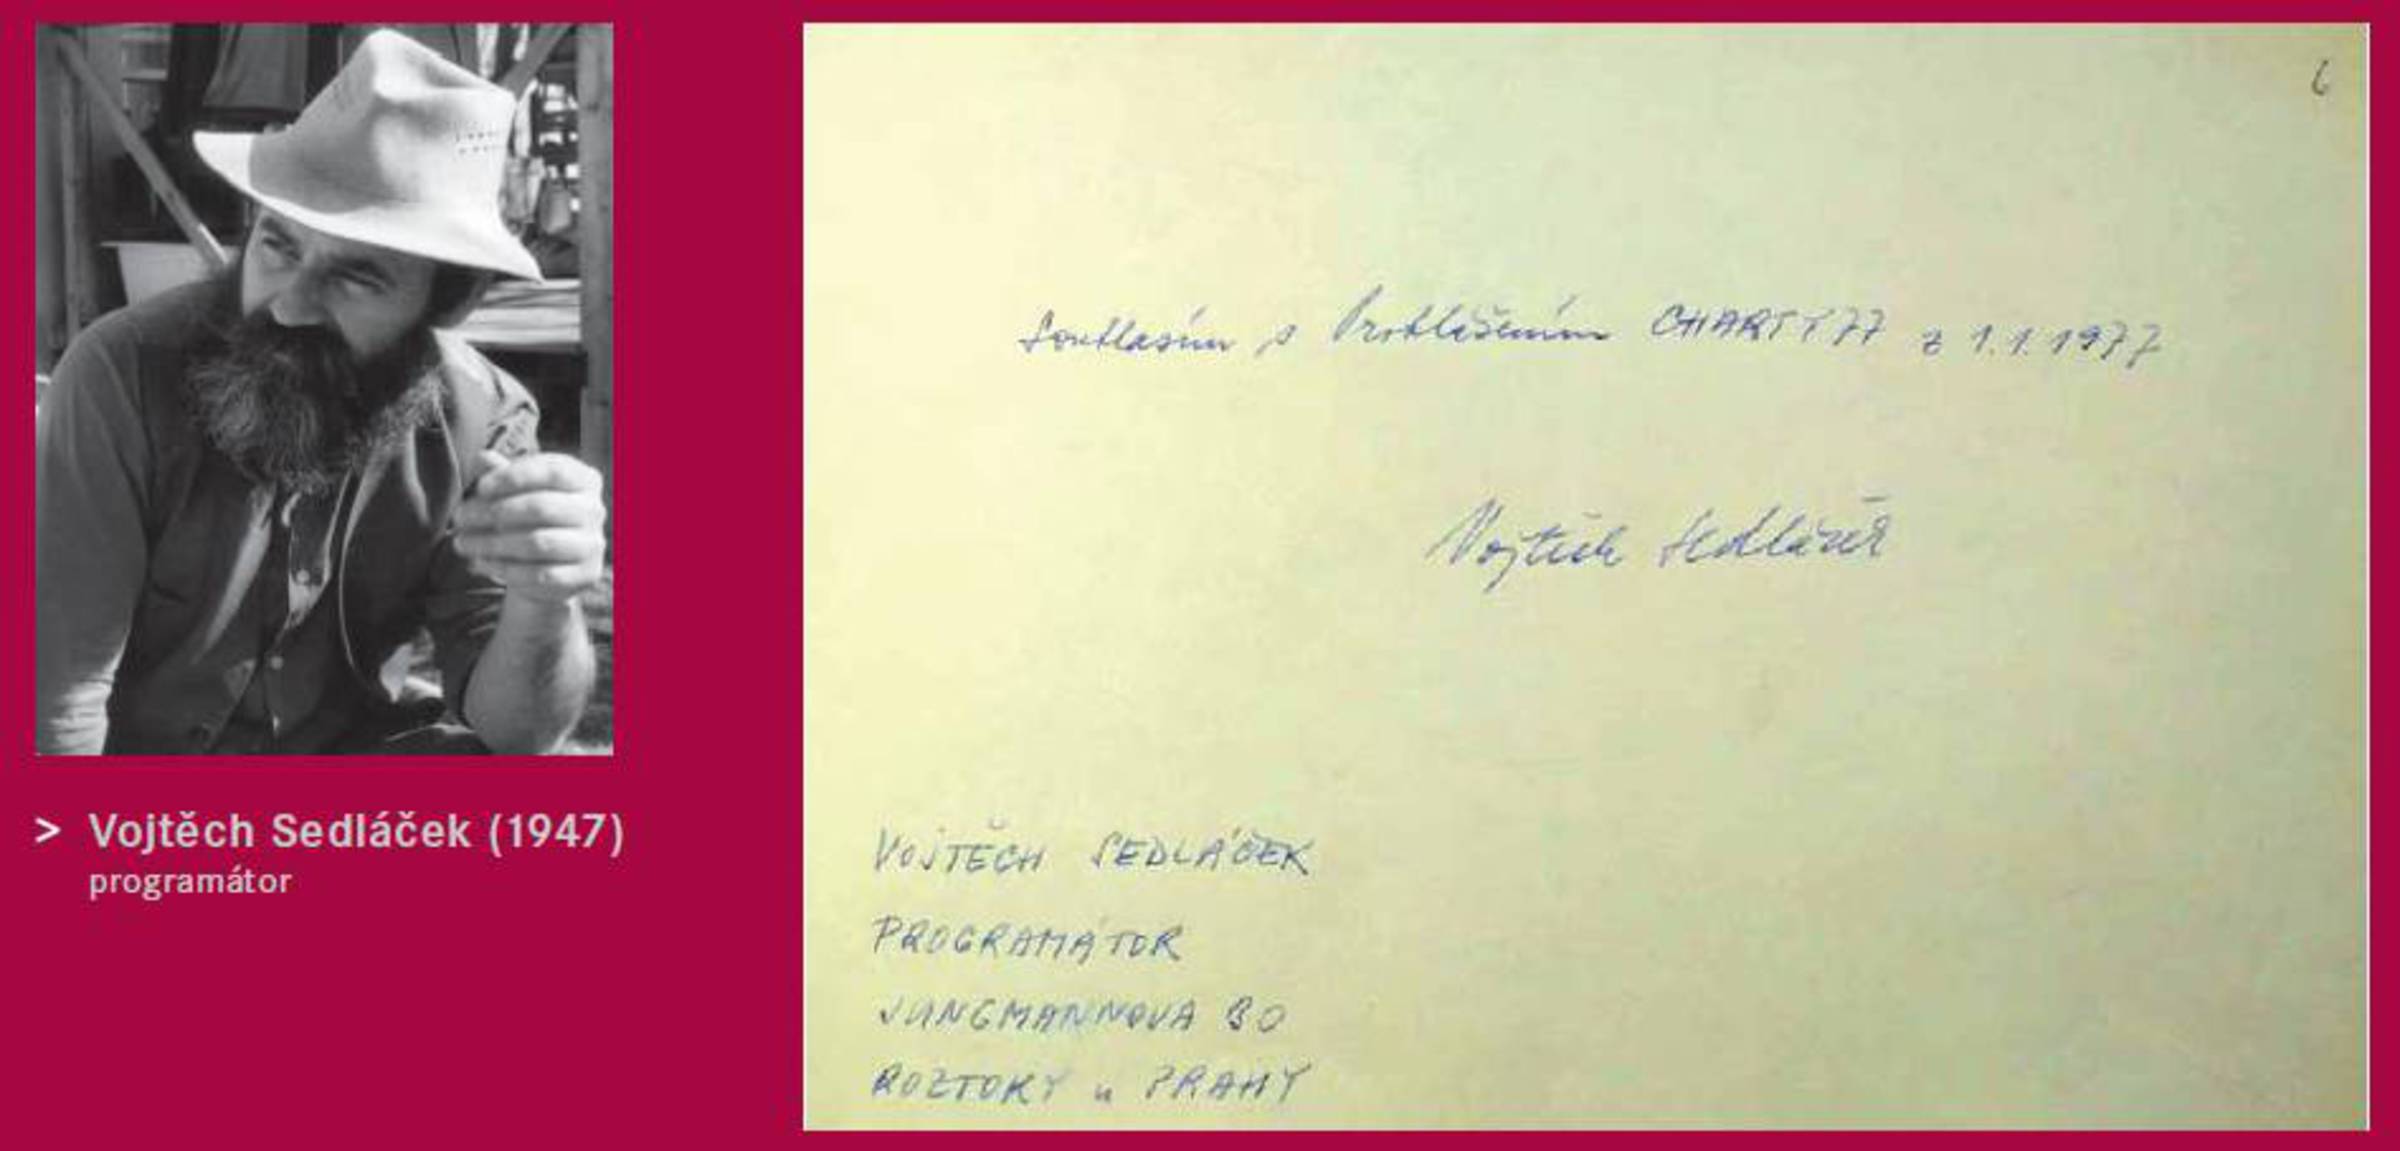 6
Souhlasím s Prohlášením CHARTY 77 z 1.1.1977
Vojtěch Sedláček
VOJTĚCH SEDLÁČEK
PROGRAMÁTOR
JUNGMANNOVA 30
ROZTOKY u PRAHY
> Vojtěch Sedláček (1947)
programátor